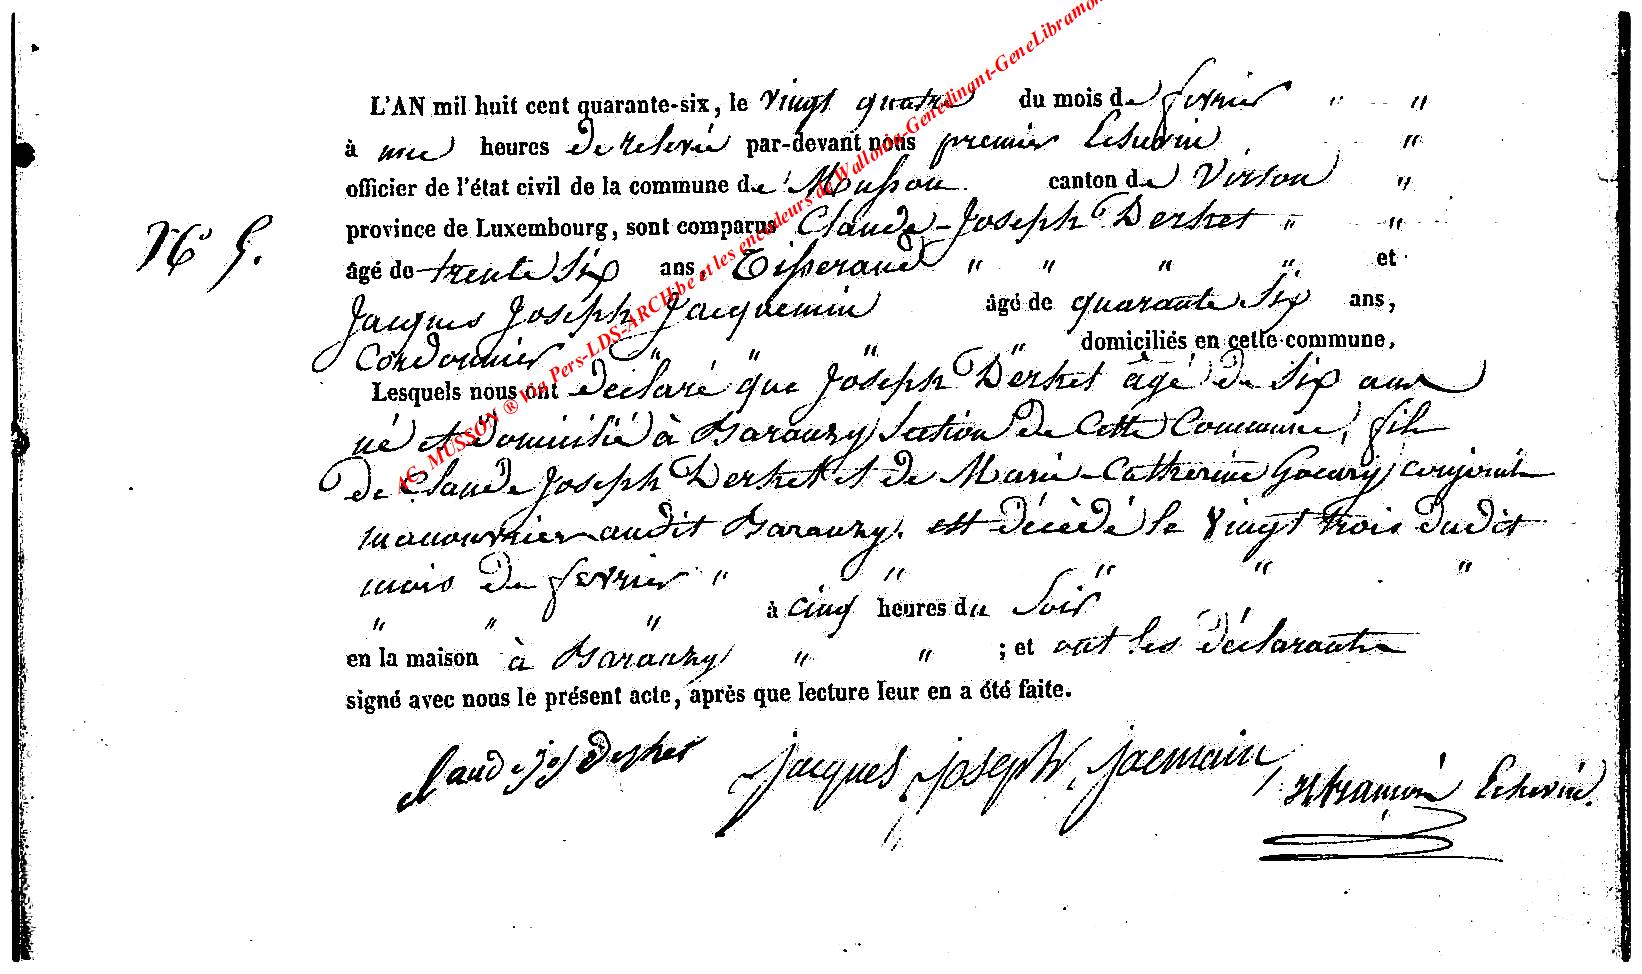 L'AN mil huit cent quarante-six, le Vingt quatre du mois de fevrier " "
à une heures de relevée par-devant nous premier Echevin "
officier de l'état civil de la commune de Musson canton de Virton "
province de Luxembourg, sont comparus Claude-Joseph Dersket " "
N° 5.
âgé de trente Six ans, Tisserand " " " " et
Jacques Joseph Jacquemin âgé de quarante Six ans,
Cordonnier " " " " domiciliés en cette commune.
Lesquels nous ont déclaré que Joseph Dersket âgé de Six ans
né et domicilié à Baranzy Section de cette Commune, fils
de Claude Joseph Dersket et de Marie-Catherine Goeury conjoints
manouvrier audit Baranzy. est décèdé le Vingt trois dudit
mois de fevrier " " " " "
" " " à cinq heures du Soir
en la maison à Baranzy " " ; et ont les déclarants
signé avec nous le présent acte, après que lecture leur en a été faite.
Claude jos Jacques joseph, jacmain, Echevin.
AC. MUSSON ® Via Pers-LDS-ARCH.be et les encodeurs de Wallonia-Genedinant-GeneLibramon